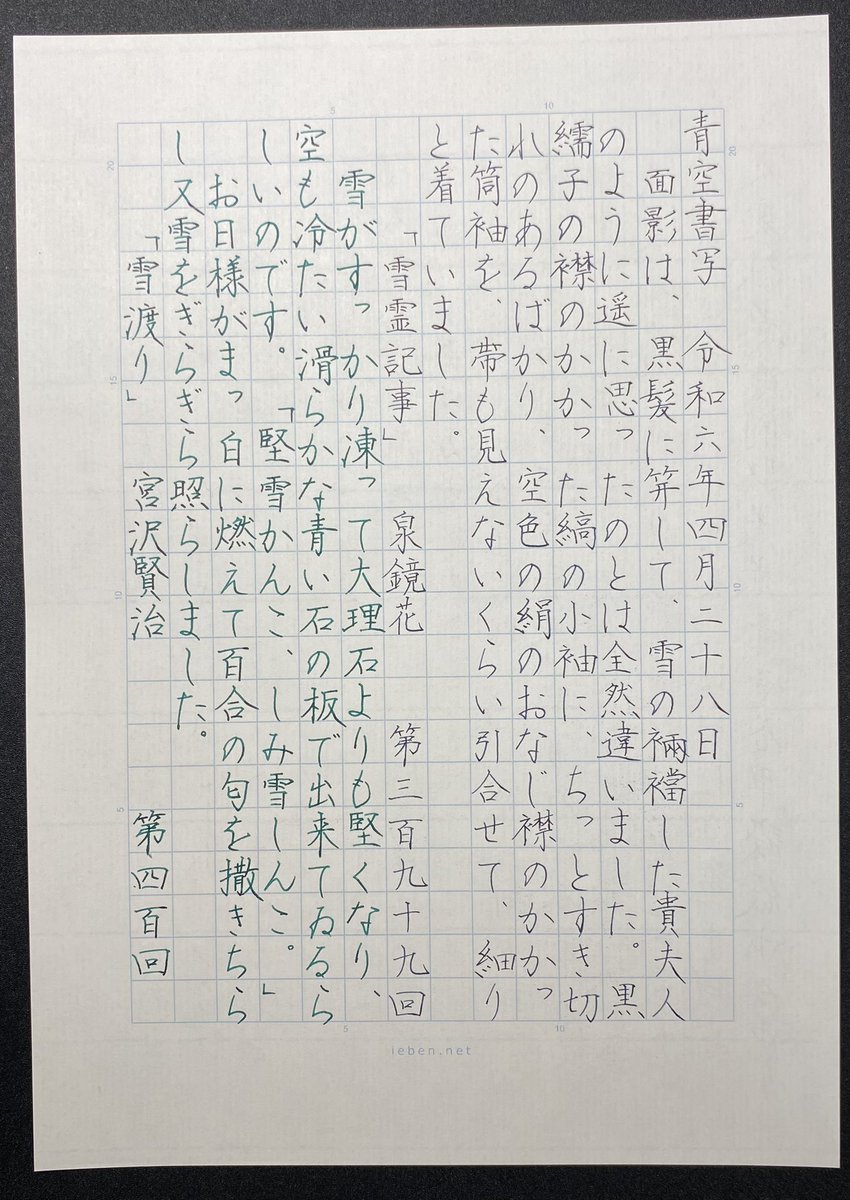 青空書写　令和六年四月二十八日
　面影は、黒髪に笄して、雪の裲襠した貴夫人
のように遥に思ったのとは全然違いました。黒
繻子の襟のかかった縞の小袖に、ちっとすき切
れのあるばかり、空色の絹のおなじ襟のかかっ
た筒袖を、帯も見えないくらい引合せて、細り
と着ていました。
「雪霊記事」　泉鏡花　第三百九十九回
　雪がすっかり凍って大理石よりも堅くなり、
空も冷たい滑らかな青い石の板で出来てゐるら
しいのです。「堅雪かんこ、しみ雪しんこ。」
　お日様がまっ白に燃えて百合の匂を撒きちら
し又雪をぎらぎら照らしました。
「雪渡り」　宮沢賢治　第四百回
20
15
10
5
20
15
10
5
5
10
5
10
ieben.net